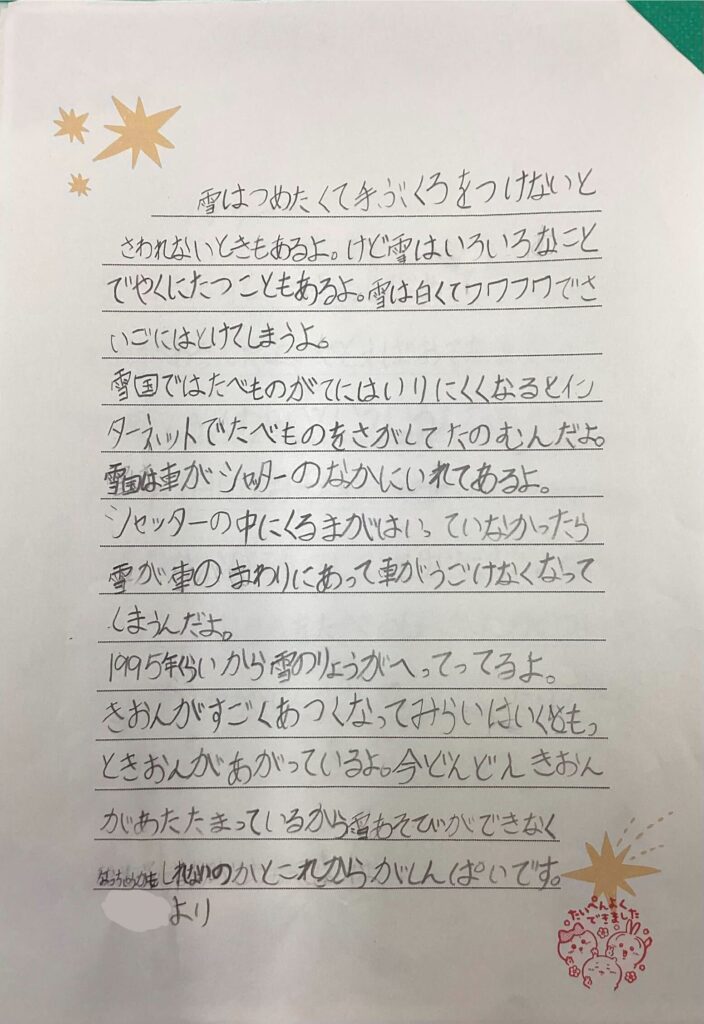 雪はつめたくて手ぶくろをつけないと
さわれないときもあるよ。けど雪はいろいろなこと
でやくにたつこともあるよ。雪は白くてフワフワでさ
いごにはとけてしまうよ。
雪国ではたべものがてにはいりにくくなるとイン
ターネットでたべものをさがしてたのむんだよ。
雪国は車がシャッターのなかにいれてあるよ。
シャッターの中にくるまがはいっていなかったら
雪が車のまわりにあって車がうごけなくなって
しまうんだよ。
1995年くらいから雪のりょうがへってってるよ。
きおんがすごくあつくなってみらいはいくともっ
ときおんがあがっているよ。今どんどんきおん
があたたまっているから雪あそびができなく
なっちゃうかもしれないのかとこれからがしんぱいです。
より
たいへんよく
できました